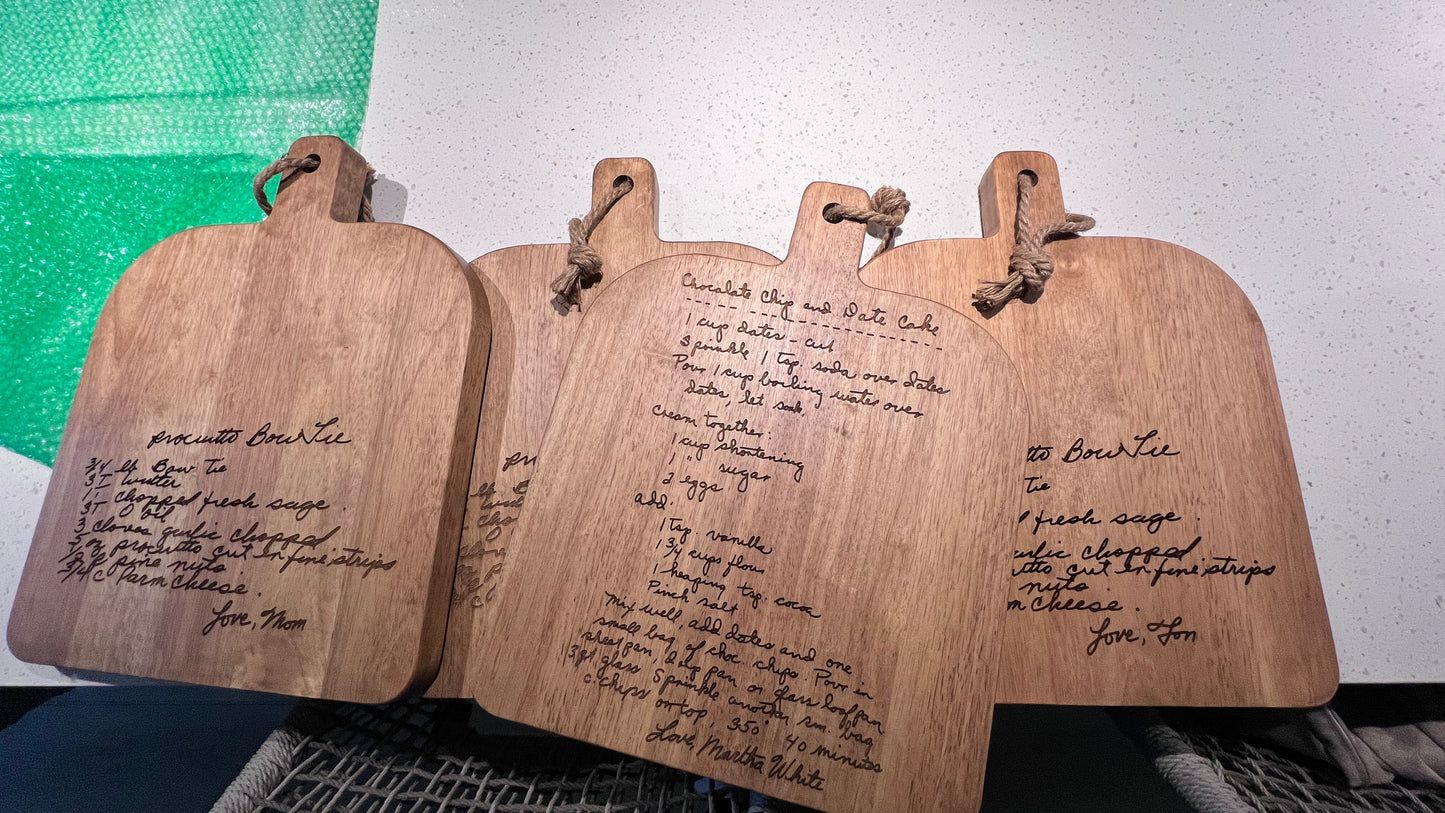 prociutto Bow Tie
3/4 lb Bow Tie
3T butter
1T chopped fresh sage.
3T O oil
3 cloves garlic chopped
5 oz prociutto cut in fine strips
pine nuts
3/4 c Parm cheese.
Love, Mom
Chocolate Chip and Date Cake
1 cup dates - cut
Sprinkle 1 tsp. soda over dates
Pour 1 cup boiling water over
dates, let soak.
Cream together:
1 cup shortening
1 " sugar
2 eggs
add:
1 tsp. vanilla
1 3/4 cups flour
1 heaping tsp. cocoa
Pinch salt
Mix well, add dates and one
small bag of choc. chips. Pour in
sheet pan, deep pan or glass loaf pan
3 qt glass Sprinkle another sm. bag
c. chips on top, 350° 40 minutes
Love, Martha White
tto Bow Tie
tie
fresh sage.
arlic chopped
utto cut in fine strips
nuts.
m cheese.
Love, Jon